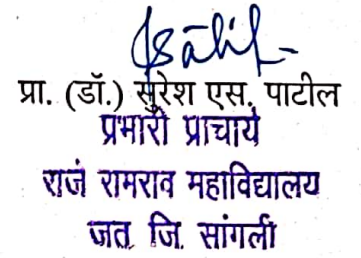 प्रा. (डॉ.) सुरेश एस. पाटील
प्रभारी प्राचार्य
राजे रामराव महाविद्यालय
जत जि. सांगली